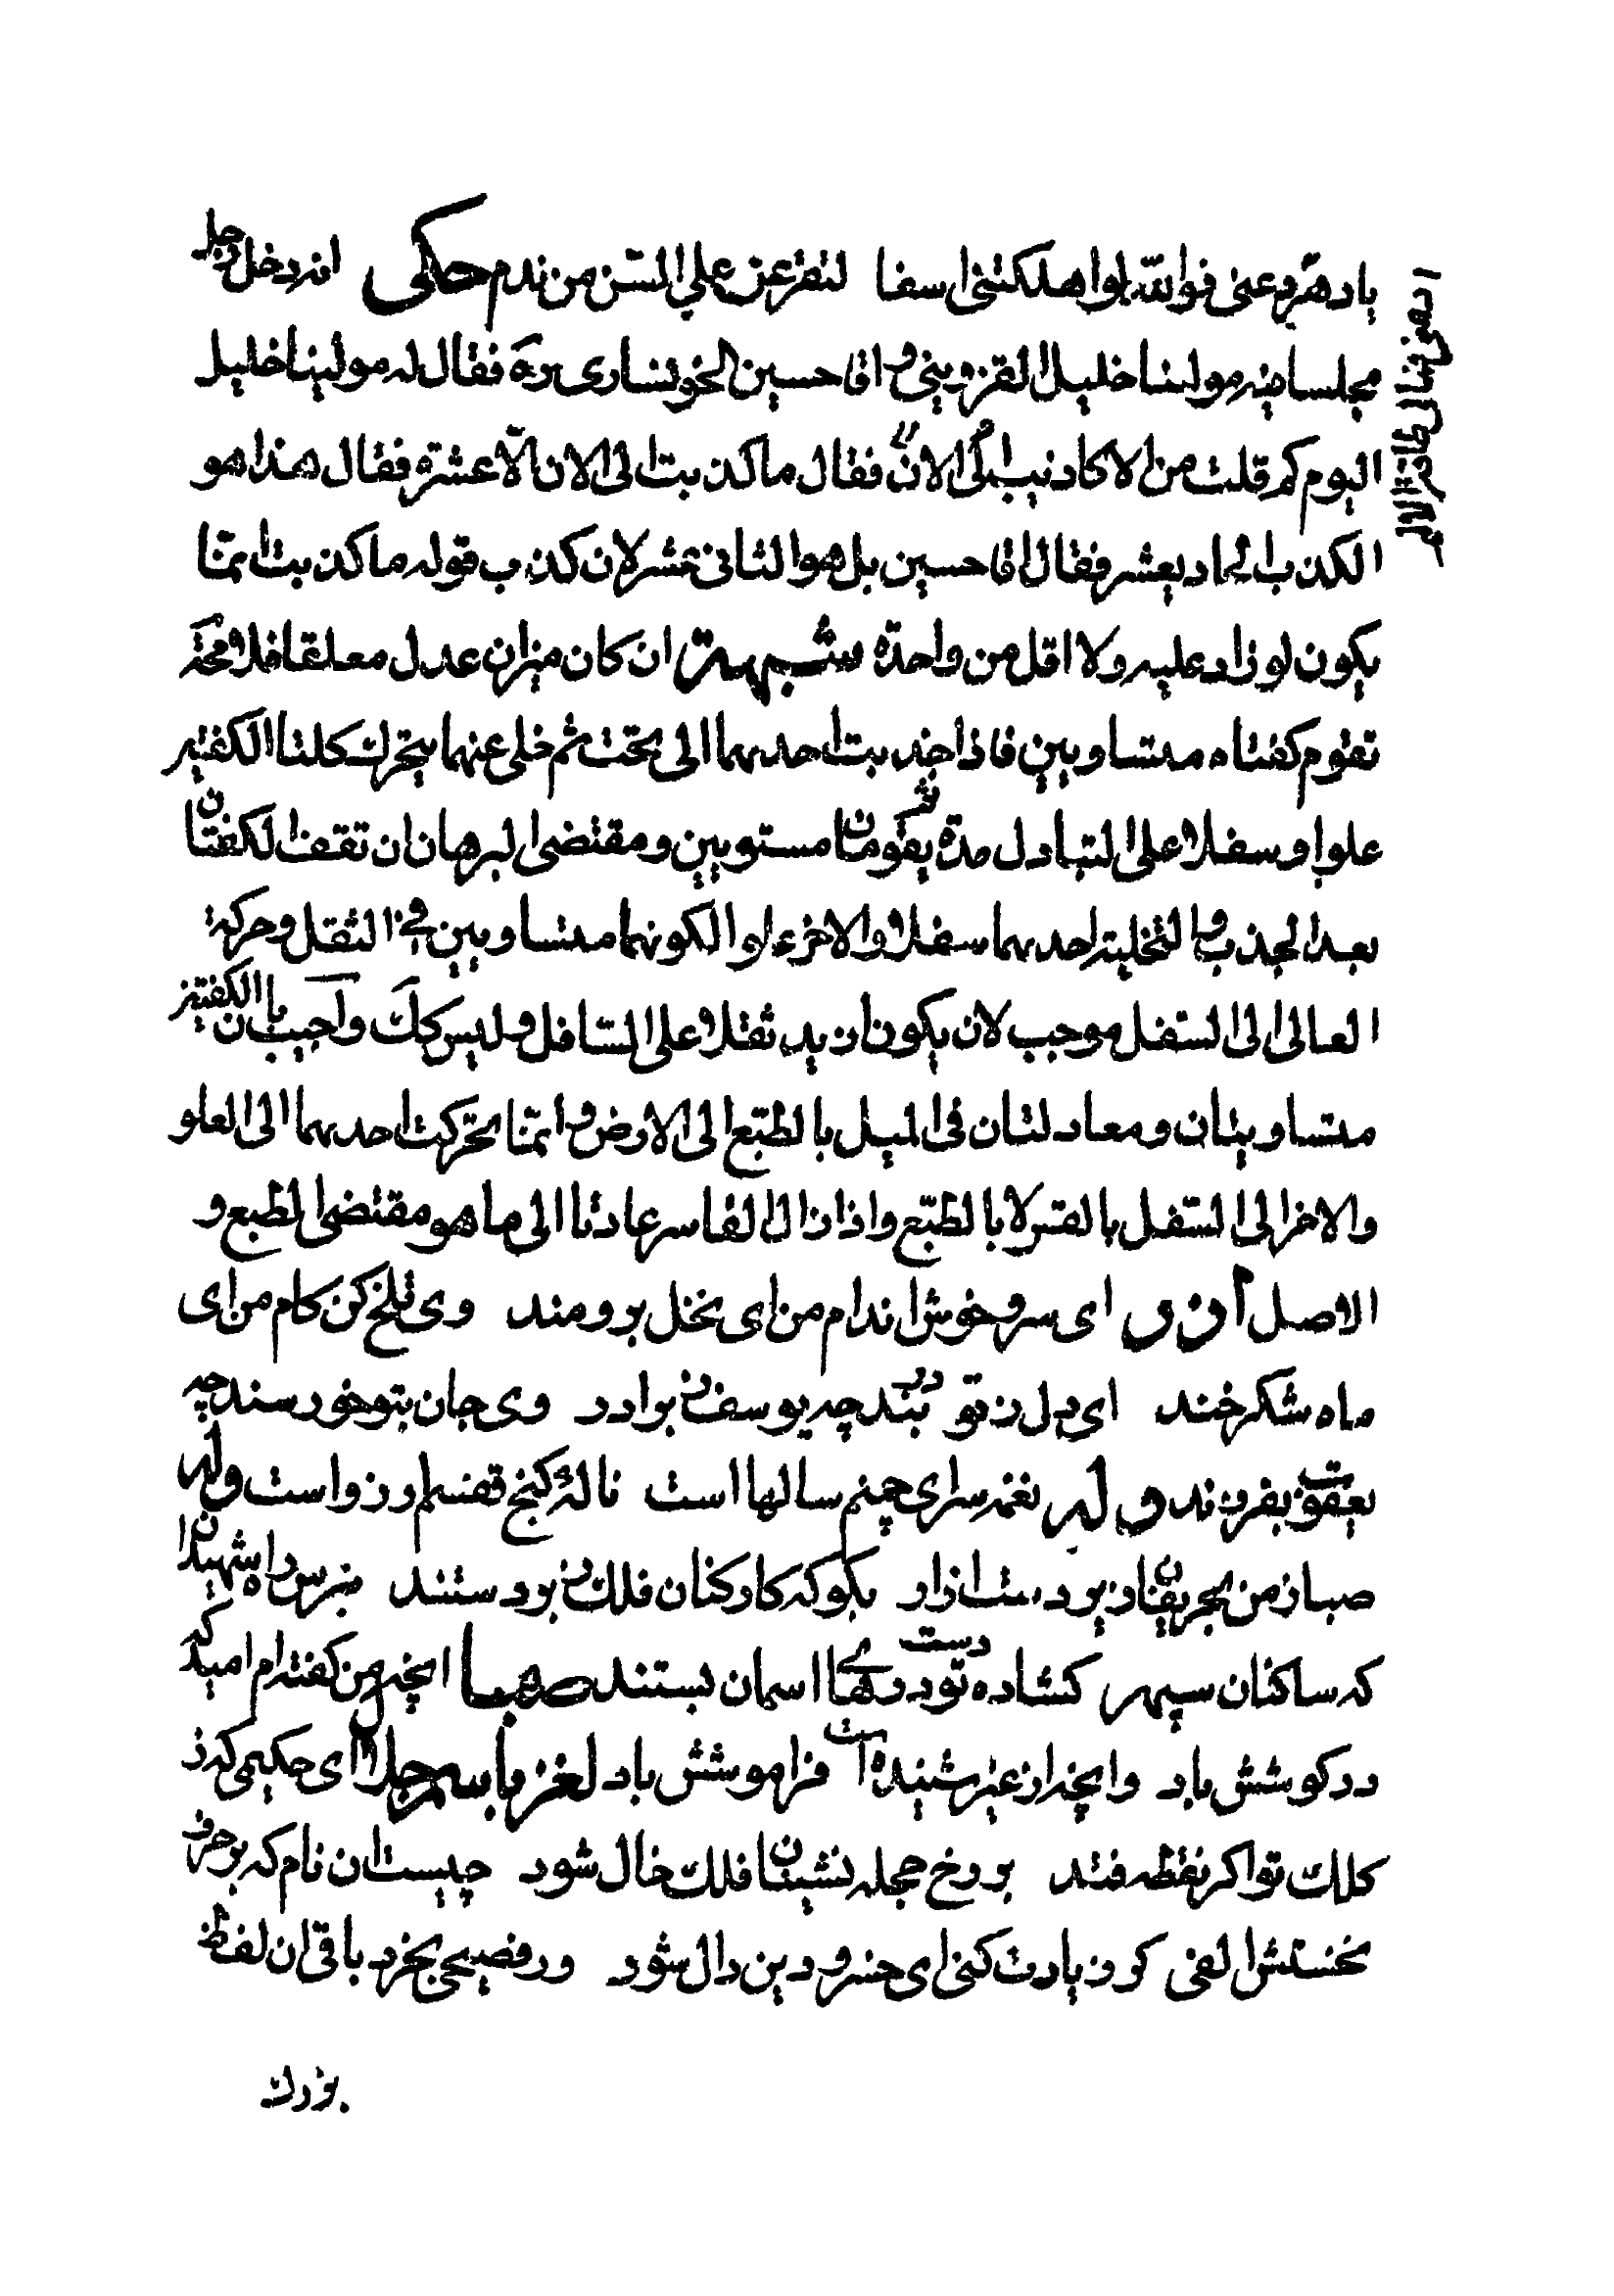 يا دهر دعنى فوالله لو اهلكتنى اسفا لتقرعن علي السن من ندم حكى انه دخل رجل
مجلسا فيه مولينا خليل القزوينى و اقا حسين الخونسارى ره فقال له مولينا خليل
اليوم كم قلت من الاكاذيب الى الان فقال ما كذبت الى الان الا عشرة فقال هذا هو
الكذب الحاديعشر فقال اقا حسين بل هو الثانى عشر لان كذب قوله ما كذبت انما
يكون لو زاد عليه ولا اقل من واحدة شبهة ان كان ميزان عدل معلقا فلا محة
تقوم كفتاه متساويين فاذا جذبت احديهما الى تحت ثم خلى عنهما يتحرك كلتا الكفتين
علوا و سفلا على التبادل مدة ثم يقومان مستويين و مقتضى البرهان ان تقف الكفتان
بعد الجذب و التخلية احديهما سفلا و الاخرى علوا لكونهما متساويين فى الثقل و حركة
العالى الى السفل موجب لان يكون ازيد ثقلا على السافل و ليس كك و اجيب بان الكفتين
متساويتان و معادلتان فى الميل بالطبع الى الارض و انما تحركت احديهما الى العلو
والاخر الى السفل بالقسر لا بالطبع و اذا زال القاسر عادتا الى ما هو مقتضى الطبع و
الاصل آذر اى سرو خوش اندام من اى نخل برومند وى تلخ كن كام من اى
ماه شكر خند اى دل ز تو در بند چه يوسف ز برادر وى جان بتو خورسند چه
يعقوب بفرزند وله نغمه سراى چمنم سالها است ناله كنج قفسم ارزو است وله
صبا ز من بحريفان زير دست ازار بكو كه كاركنان فلك زبردستند مترس راه شهيدان
كه ساكنان سپهر كشاده دست تو درهاى اسمان بستند صهبا انچه من كفته ام اميد كه
در كوشش باد وانچه از غير شنيده است فراموشش باد لغز باسم جلال اى حكيمى كه ز
كلك تو اكر نقطه فتد بر رخ حجله نشينان فلك خال شود چيست ان نام كه بر حرف
نخستش الفى كر زيادت كنى اى خسرو دين دال شود ور فصيحى بخرد باقى ان لفظ